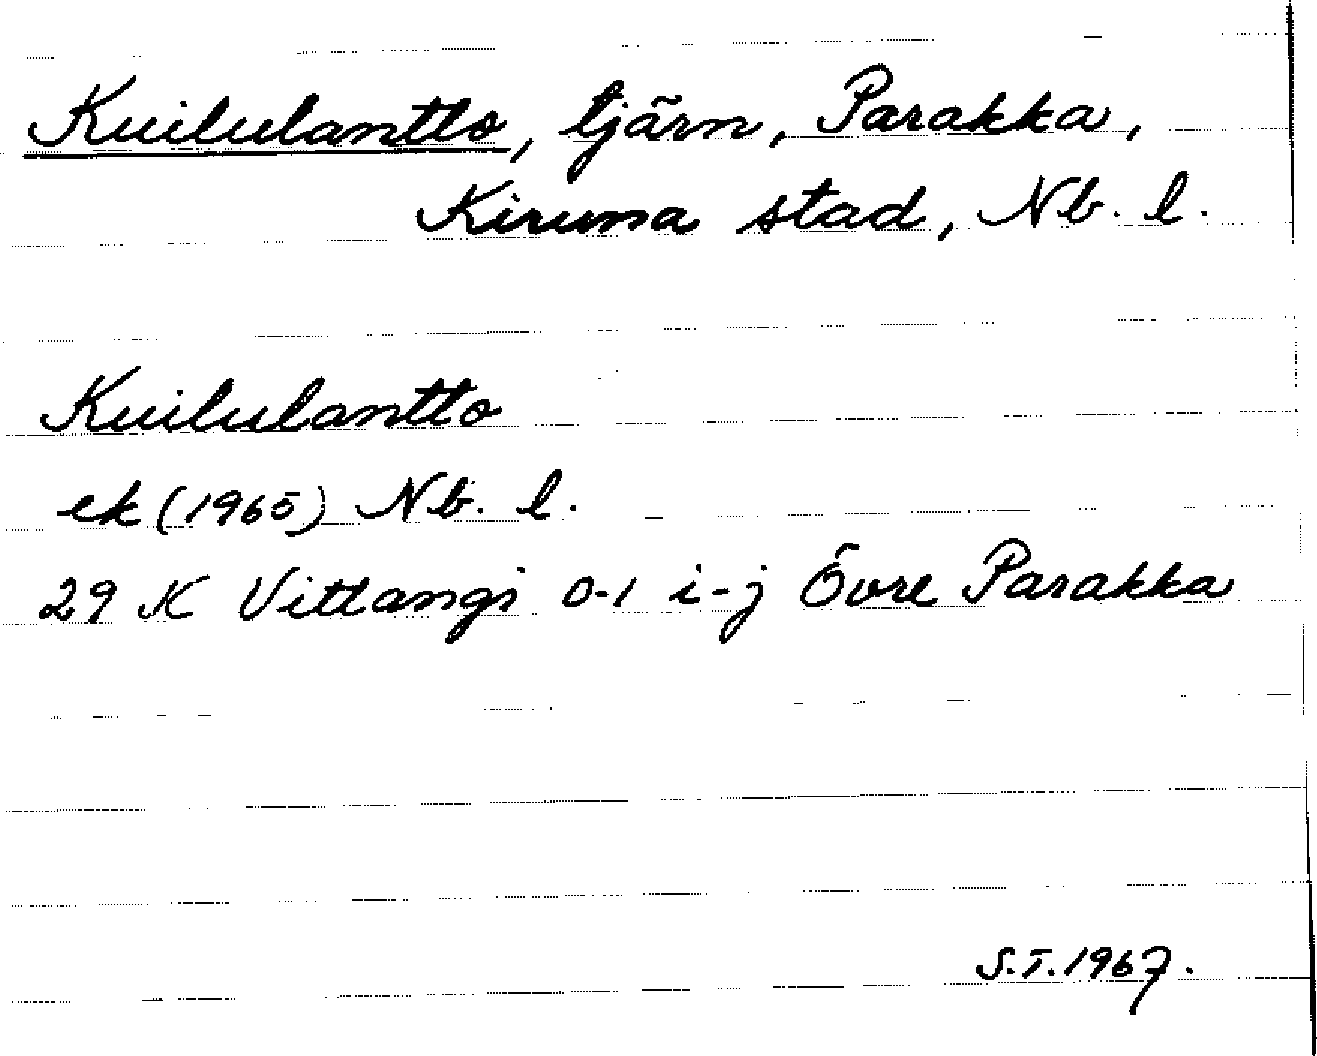 Kuilulantto, tjärn, Parakka,
Kiruna stad, Nb. l.
Kuilulantto
ek (1965) Nb. l.
29 K Vittangi 0-1 i-j Övre Parakka
S.T. 1967.